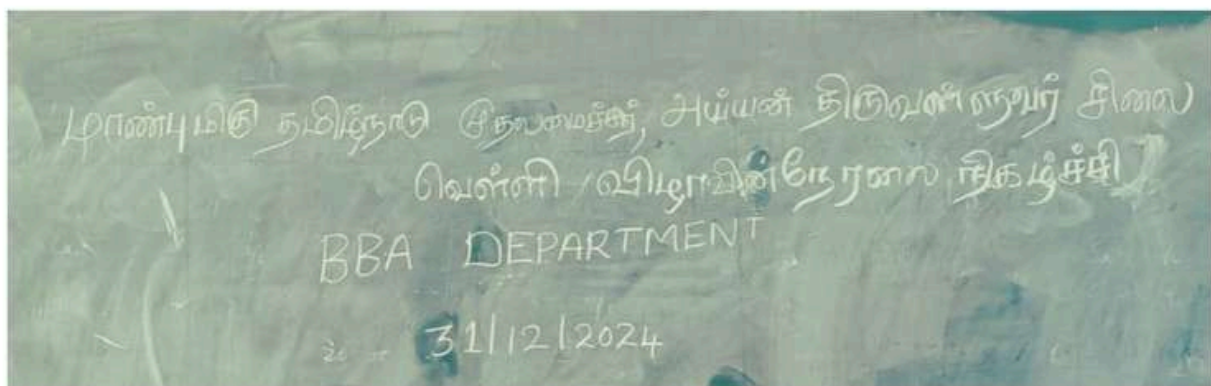 மாண்புமிகு தமிழ்நாடு முதலமைச்சர், அய்யன் திருவள்ளுவர் சிலை
வெள்ளி விழாவின் நேரலை நிகழ்ச்சி
BBA DEPARTMENT
31/12/2024